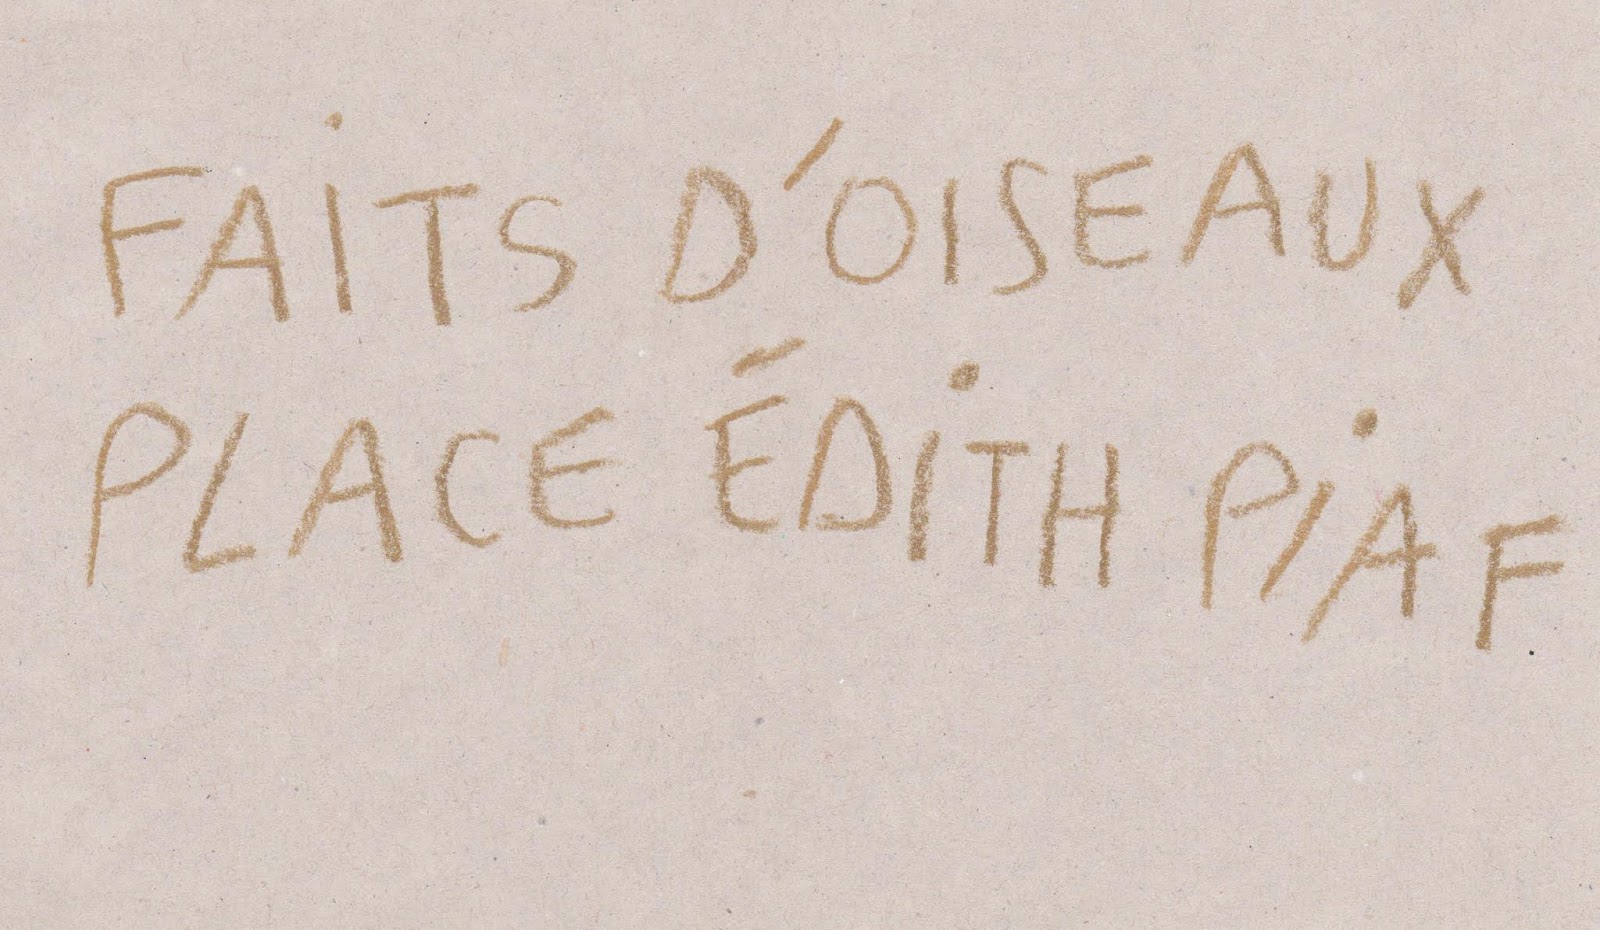 FAiTS D'OISEAUX
PLACE ÉDiTH PiAF